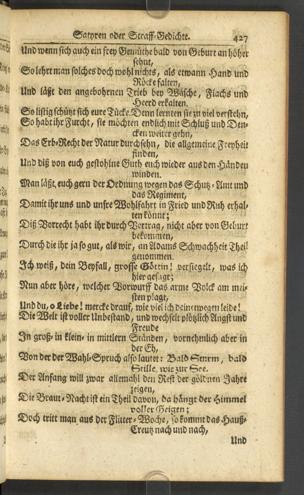 Satyren oder Straff-Gedichte. 427
Und wenn sich auch ein frey Gemüthe bald von Geburt an höher
sehnt,
So lehrt man solches doch wohl nichts, als etwann Hand und
Röcke falten,
Und läßt den angebohrnen Trieb bey Wäsche, Flachs und
Heerd erkalten.
So listig schützt sich eure Tücke. Denn lernten sie zu viel verstehn,
So habt ihr Furcht, sie möchten endlich mit Schluß und Den-
cken weiter gehn,
Das Erb-Recht der Natur durchsehn, die allgemeine Freyheit
finden,
Und diß von euch gestohlne Guth euch wieder aus den Händen
winden.
Man läßt euch gern der Ordnung wegen das Schutz-Amt und
das Regiment,
Damit ihr uns und unsre Wohlfahrt in Fried und Ruh erhal-
ten könnt;
Diß Vorrecht habt ihr durch Vertrag, nicht aber von Geburt
bekommen,
Durch die ihr ja so gut, als wir, an Adams Schwachheit Theil
genommen.
Ich weiß, dein Beyfall, grosse Göttin! versiegelt, was ich
hier gesagt;
Nun aber höre, welcher Vorwurff das arme Volck am mei-
sten plagt,
Und du, o Liebe! mercke drauf, wie viel ich deinetwegen leide!
Die Welt ist voller Unbestand, und wechselt plötzlich Angst und
Freude
In groß- in klein- in mittlern Ständen, vornehmlich aber in
der Eh,
Von der der Wahl-Spruch also lautet: Bald Sturm, bald
Stille, wie zur See.
Der Anfang will zwar allemahl den Rest der göldnen Jahre
zeigen,
Die Braut-Nacht ist ein Theil davon, da hängt der Himmel
voller Geigen;
Doch tritt man aus der Flitter-Woche, so kommt das Hauß-
Creutz nach und nach,
Und